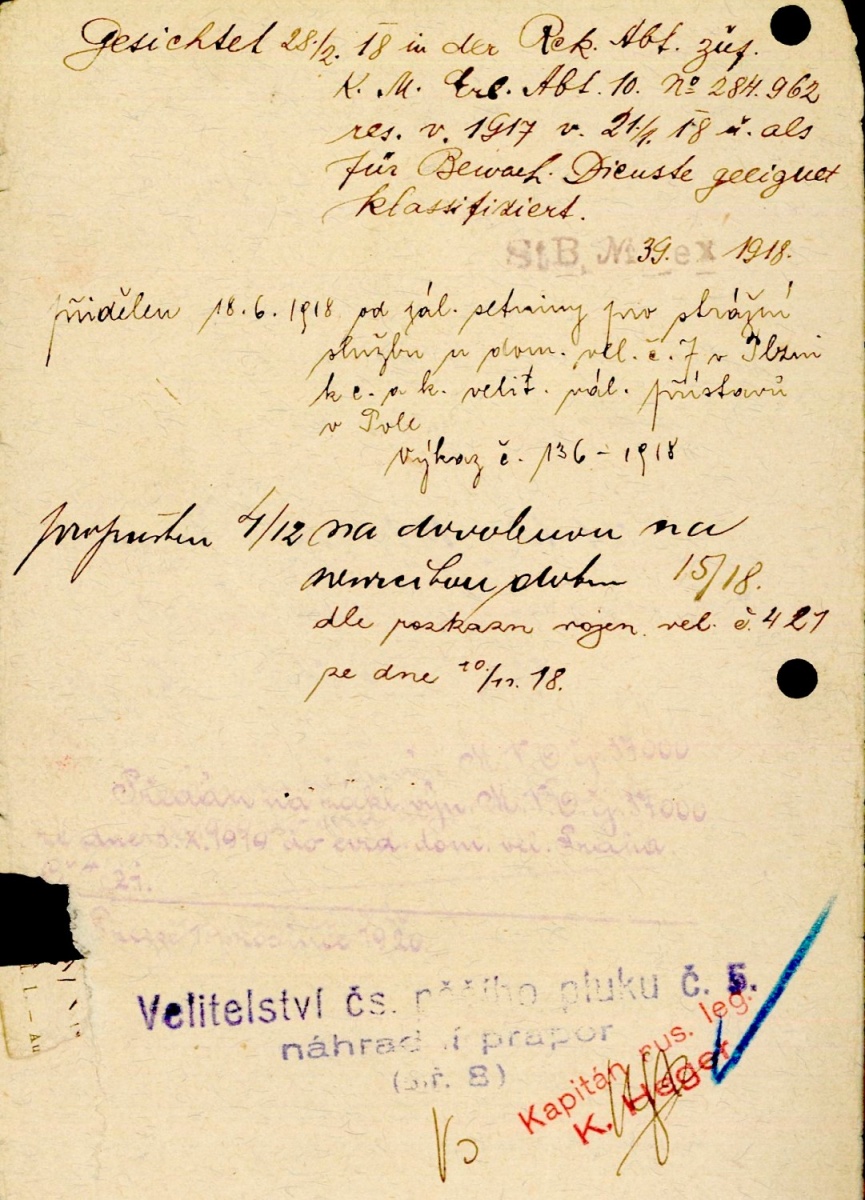 Gesichtet 28./2. 18 in der Rek. Abt. zuf.
K. M. Erl. Abt. 10. No 284.962
res. v. 1917 v. 21/1. 18 u. als
für Bewach. Dienste geeignet
klassifiziert.
StB, 39. 1918.
přidělen 18.6.1918 od zál. setniny pro strážní
službu u dom. vel. č. 7 v Plzni
k c. a k. velit. vál. přístavu
v Pole
Výkaz č. 136 - 1918
propuštěn 4/12 na dovolenou na
neurčitou dobu 15/18.
dle rozkazu vojen. vel. č. 421
ze dne 10./11. 18.
M V O 57000
Předán na zákl. výn. M. V. O. 57000
dom. vel. Praha
1920
Velitelství čs. pěšího pluku č. 5.
náhradní prapor
Kapitán rus. leg.
K. Heger
I. — Au